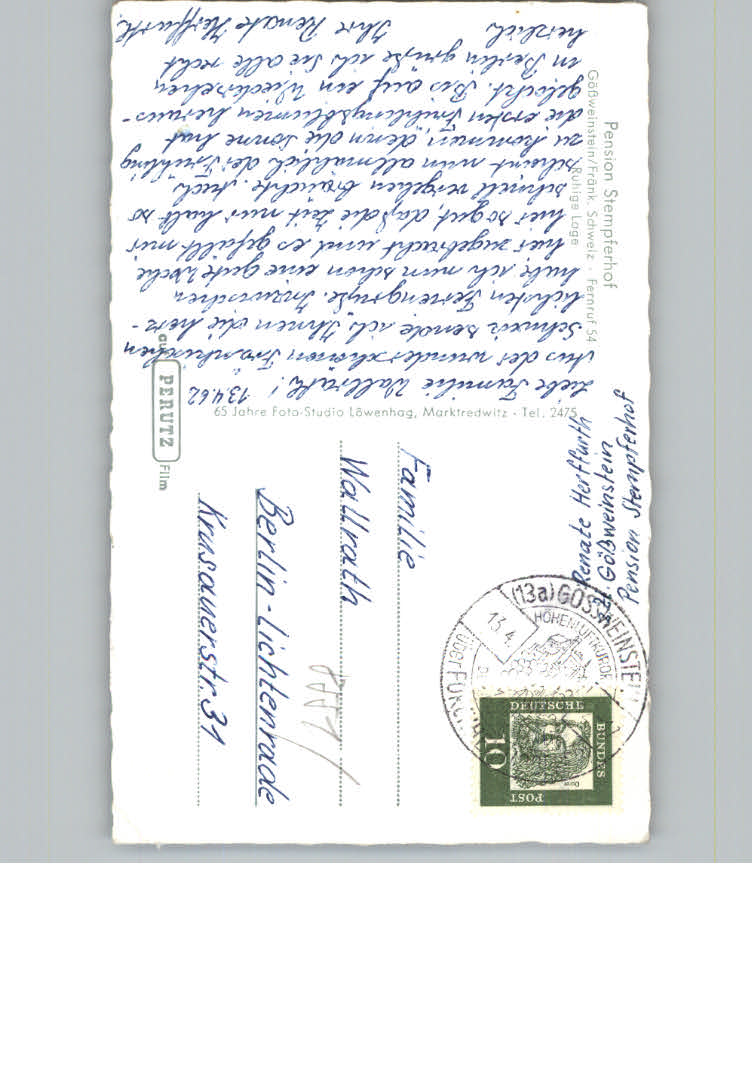 Pension Stempferhof
Gößweinstein/Fränk. Schweiz - Fernruf 54
Ruhige Lage
Liebe Familie Wallrath! 13.4.62
Aus der wunderschönen Fränkischen
Schweiz sende ich Ihnen die herz-
lichsten Feriengrüße. Inzwischen
habe ich nun schon eine gute Woche
hier zugebracht und es gefällt mir
hier so gut, daß die Zeit nur halb so
schnell vergehen bräuchte. Auch
scheint nun allmählich der Frühling
zu kommen, denn die Sonne hat
die ersten Frühlingsblumen heraus-
gelockt. Bis auf ein Wiedersehen
in Berlin grüße ich Sie alle recht
herzlich Ihre Renate Herffurth
65 Jahre Foto-Studio Löwenhag, Marktredwitz - Tel. 2475
auf
PERUTZ
Film
Renate Herffurth
Gößweinstein
Pension Stempferhof
(13a) GÖSSWEINSTEIN
HÖHENLUFTKURORT
13.4.
über FORCHH
DEUTSCHE
BUNDES
POST
10
Dürer
Familie
Wallrath
Berlin-Lichtenrade
Krusauerstr. 31